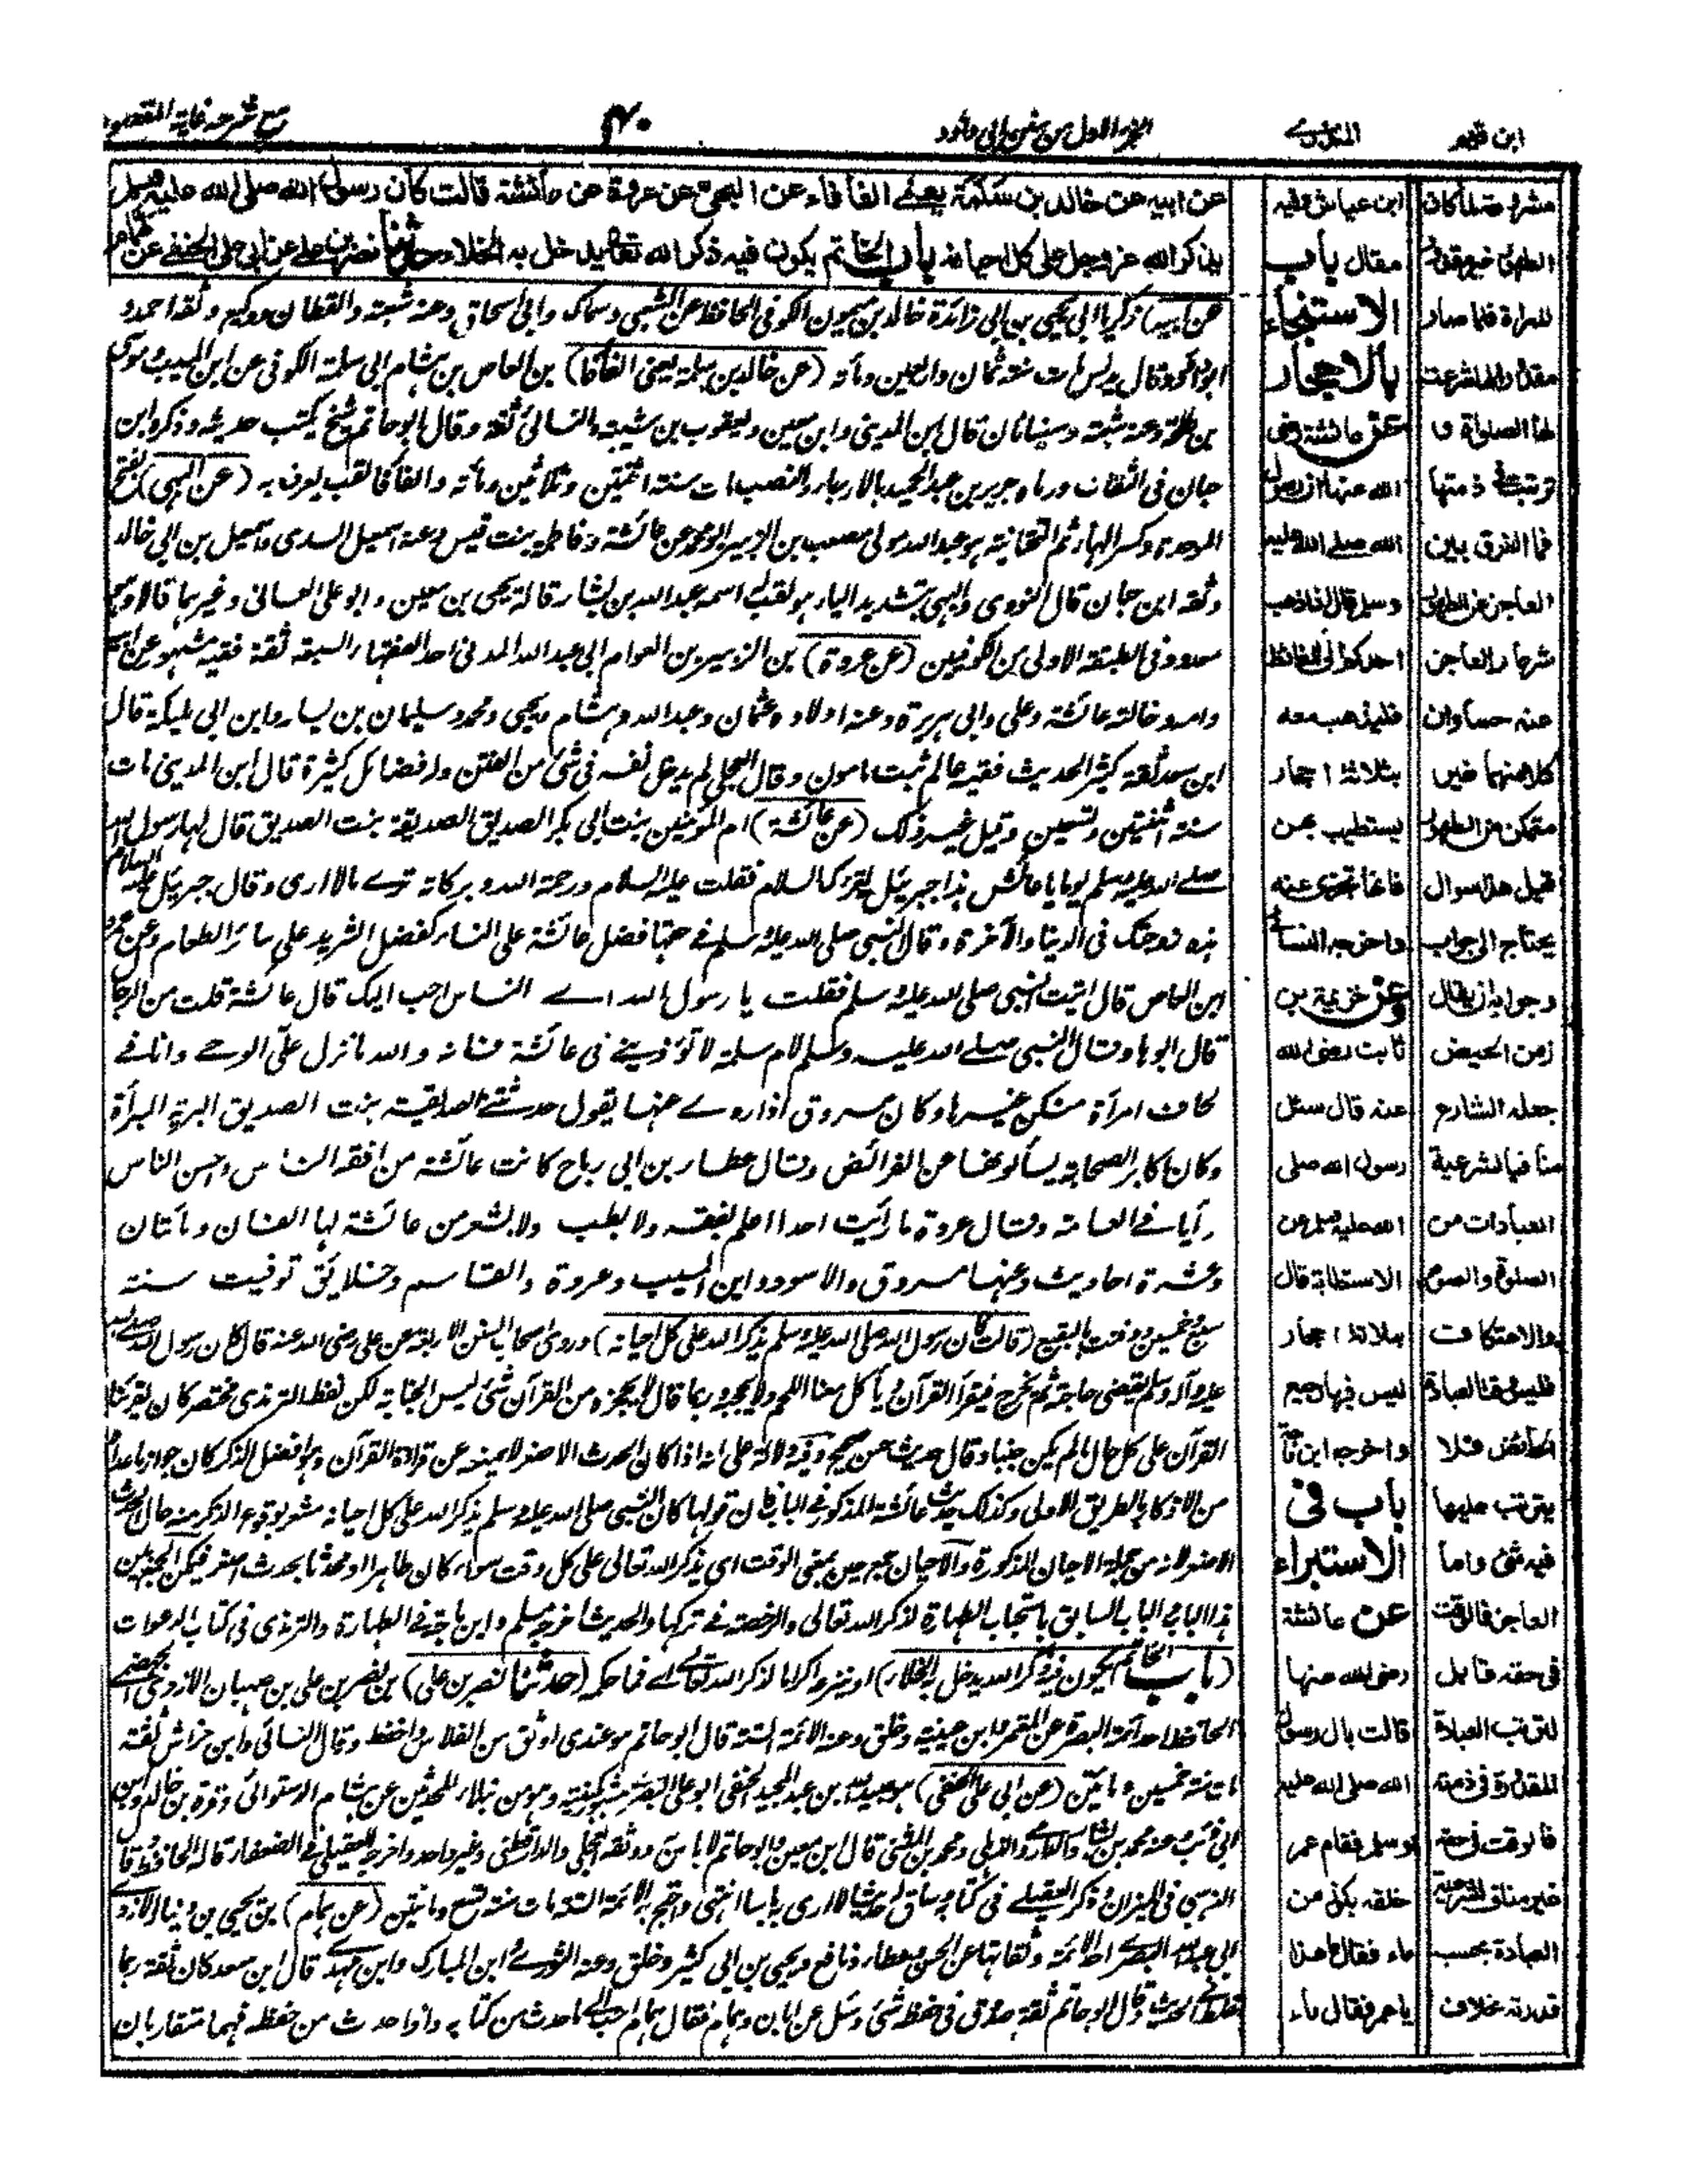 ابن قيم
المنذري
الجزء الاول من سنن ابي داود
۴۰
مع شرحه غاية المقصود
عن ابيه عن خالد بن سلمة يعني الفأفاء عن البهي عن عروة عن عائشة قالت كان رسول الله صلى الله عليه وسلم
يذكر الله عز وجل على كل احيانه باب الخاتم يكون فيه ذكر الله تعالى يدخل به الخلاء حدثنا نصر بن علي عن ابي علي الحنفي عن همام
(عن ابيه) زكريا ابي يحيى بن ابي زائدة خالد بن ميمون الكوفي الحافظ عن الشعبي وسماك وابي اسحاق وعنه شعبة والقطان ووكيع وثقه احمد و
ابو داود وقال يدلس مات سنة ثمان واربعين ومائة (عن خالد بن سلمة يعني الفأفا) بن العاص بن هشام ابي سلمة الكوفي عن ابن المسيب وموسى
بن طلحة وعنه شعبة وسفيانان قال ابن المديني وابن معين ويعقوب بن شيبة والنسائي ثقة وقال ابو حاتم شيخ يكتب حديثه وذكره ابن
حبان في الثقات ورماه جرير بن عبد الحميد بالارجاء والنصب مات سنة اثنتين وثلاثين ومائة والفأفا لقب يعرف به (عن البهي) بفتح
الموحدة وكسر الهاء ثم التحتانية هو عبد الله مولى مصعب بن الزبير ابو محمد عن عائشة وفاطمة بنت قيس وعنه اسمعيل السدي واسمعيل بن ابي خالد
وثقه ابن حبان قال النووي والبهي بتشديد الياء هو لقب له اسمه عبد الله بن بشار قاله يحيى بن معين وابو علي الغساني وغيرهما قالا وهو
معدود في الطبقة الاولى من الكوفيين (عن عروة) بن الزبير بن العوام ابي عبد الله المدني احد الفقهاء السبعة ثقة فقيه مشهور عن ابيه
وامه وخالته عائشة وعلي وابي هريرة وعنه اولاده عثمان وعبد الله وهشام ويحيى ومحمد وسليمان بن يسار وابن ابي مليكة قال
ابن سعد ثقة كثير الحديث فقيه عالم ثبت مامون وقال العجلي لم يدخل نفسه في شيء من الفتن وله فضائل كثيرة قال ابن المديني مات
سنة اثنتين وتسعين وقيل غير ذلك (عن عائشة) ام المؤمنين بنت ابي بكر الصديق الصديقة بنت الصديق قال لها رسول الله
صلى الله عليه وسلم يوما يا عائش هذا جبريل يقرئك السلام فقلت عليه السلام ورحمة الله وبركاته ترى مالا ارى وقال جبريل عليه السلام
هذه زوجتك في الدنيا والآخرة وقال النبي صلى الله عليه وسلم في حقها فضل عائشة على النساء كفضل الثريد على سائر الطعام وعن عمرو
ابن العاص قال اتيت النبي صلى الله عليه وسلم فقلت يا رسول الله اي الناس احب اليك قال عائشة قلت من الرجال
قال ابوها وقال النبي صلى الله عليه وسلم لام سلمة لا تؤذيني في عائشة فانه والله ما نزل علي الوحي وانا في
لحاف امرأة منكن غيرها وكان مسروق اذا روى عنها يقول حدثتني الصديقة بنت الصديق البرية المبرأة
وكان اكابر الصحابة يسألونها عن الفرائض وقال عطاء بن ابي رباح كانت عائشة من افقه الناس واحسن الناس
رأيا في العامة وقال عروة ما رأيت احدا اعلم بفقه ولا بطب ولا بشعر من عائشة لها الفان ومائتان
وعشرة احاديث وعنها مسروق والاسود وابن المسيب وعروة والقاسم وخلائق توفيت سنة
سبع وخمسين ودفنت بالبقيع (قالت كان رسول الله صلى الله عليه وسلم يذكر الله على كل احيانه) وروى اصحاب السنن الاربعة عن علي رضي الله عنه قال كان رسول الله صلى الله
عليه وآله وسلم يقضي حاجته ثم يخرج فيقرأ القرآن ويأكل معنا اللحم ولا يحجبه وربما قال لا يحجزه من القرآن شيء ليس الجنابة لكن لفظ الترمذي مختصر كان يقرئنا
القرآن على كل حال ما لم يكن جنبا وقال حديث حسن صحيح وفيه دلالة على انه اذا كان الحدث الاصغر لا يمنعه عن قراءة القرآن وهو افضل الذكر كان جواز ما عداه
من الاذكار بالطريق الاولى وكذلك حديث عائشة المذكور في الباب فان قولها كان النبي صلى الله عليه وسلم يذكر الله على كل احيانه مشعر بوقوع الذكر منه حال الحدث
الاصغر لانه من جملة الاحيان المذكورة والاحيان جمع حين بمعنى الوقت اي يذكر الله تعالى على كل وقت سواء كان طاهرا او محدثا بحدث اصغر
هذا الباب الباب السابق باستحباب الطهارة لذكر الله تعالى والرخصة في تركها والحديث اخرجه مسلم وابن ماجة في الطهارة والترمذي في كتاب الدعوات
(باب الخاتم يكون فيه ذكر الله يدخل به الخلاء) او ينزعه اكراما لذكر الله تعالى فما حكمه (حدثنا نصر بن علي) بن نصر بن علي بن صهبان الازدي الجهضمي
الحافظ احد ائمة البصرة عن المعتمر وابن عيينة وخلق وعنه الائمة الستة قال ابو حاتم هو عندي اوثق من الفلاس واحفظ وقال النسائي وابن خراش ثقة
مات سنة خمسين ومائتين (عن ابي علي الحنفي) هو عبيد الله ابن عبد المجيد الحنفي ابو علي البصري مشهور بكنيته وهو من نبلاء المحدثين عن هشام الدستوائي وقرة بن خالد وابن
ابي ذئب وعنه محمد بن بشار والدارمي والذهلي ومحمد بن المثنى قال ابن معين وابو حاتم لا باس به ووثقه العجلي والدارقطني وغير واحد واخرجه العقيلي في الضعفاء قاله الحافظ وقال
الذهبي في الميزان وذكره العقيلي في كتابه وساق له حديثا لا ارى به باسا انتهى واحتج به الائمة الستة مات سنة تسع ومائتين (عن همام) بن يحيى بن دينار الازدي
ابي عبد الله البصري احد الائمة وثقاتها عن الحسن وعطاء ونافع ويحيى بن ابي كثير وخلق وعنه الثوري وابن المبارك وابن مهدي قال ابن سعد كان ثقة ربما
غلط في الحديث وقال ابو حاتم ثقة صدوق في حفظه شيء وسئل عن ابان وهمام فقال همام احب الي ما حدث من كتابه واذا حدث من حفظه فهما متقاربان
ابن عياش وفيه
مقال باب
الاستنجاء
بالاحجار
عن عائشة رضي
الله عنها ان رسول
الله صلى الله عليه
وسلم قال اذا ذهب
احدكم الى الغائط
فليذهب معه
بثلاثة احجار
يستطيب بهن
فانها تجزئ عنه
واخرجه النسائي
وعن خزيمة بن
ثابت رضي الله
عنه قال سئل
رسول الله صلى
الله عليه وسلم عن
الاستطابة قال
بثلاثة احجار
ليس فيها رجيع
واخرجه ابن ماجة
باب في
الاستبراء
عن عائشة
رضي الله عنها
قالت بال رسول
الله صلى الله عليه
وسلم فقام عمر
خلفه بكوز من
ماء فقال ما هذا
يا عمر فقال ماء
مشروعتها كان
الطهر غير مقدور
للمرأة فلما صار
مقدورا لها شرعت
لها الصلاة و
ترتبت في ذمتها
فما الفرق بين
العاجز عن الطهور
شرعا والعاجز
عنه حسا وان
كلا منهما غير
متمكن من الطهور
قيل هذا سوال
يحتاج الى جواب
وجوابه ان يقال
زمن الحيض
جعله الشارع
منافيا لشرعية
العبادات من
الصلوة والصوم
والاعتكاف
فليس وقتا لعبادة
الحائض فلا
يترتب عليها
فيه شيء واما
العاجز فالوقت
في حقه قابل
لترتب العبادة
المقدورة في ذمته
فالوقت في حقه
غير مناف لشرعية
العبادة بحسب
قدرته بخلاف